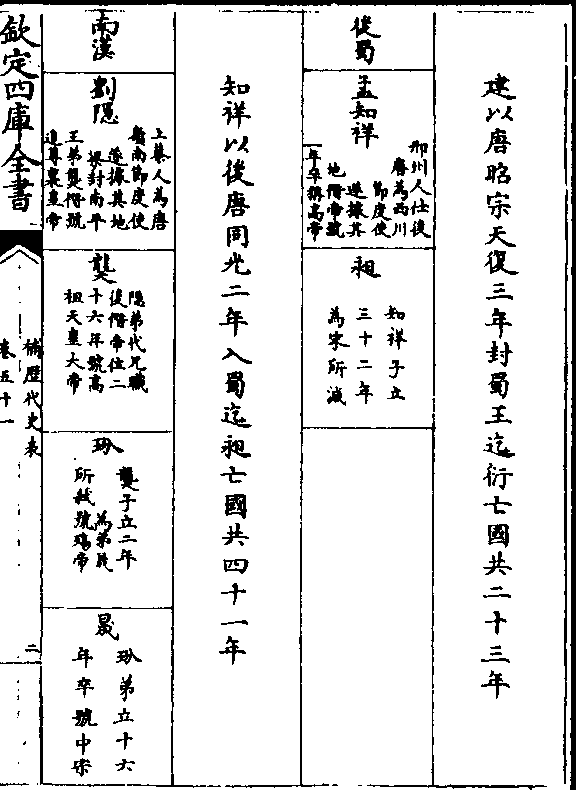 建以唐昭宗天復三年封蜀王迄衍亡國共二十三年
後蜀
孟知祥
邢州人仕後
唐為西川
節度使
遂據其
地僭帝號
一年卒號高帝
昶
知祥子立
三十二年
為宋所滅
知祥以後唐同光二年入蜀迄昶亡國共四十一年
南漢
劉隱
上蔡人為唐
嶺南節度使
遂據其地
梁封南平
王弟龑僭號
追尊襄皇帝
龑
隱弟代兄職
後僭帝位二
十六年號高
祖天皇大帝
玢
龑子立二年
為弟晟
所弒號殤帝
晟
玢弟立十六
年卒號中宗
欽定四庫全書
補歷代史表
卷五十一
二